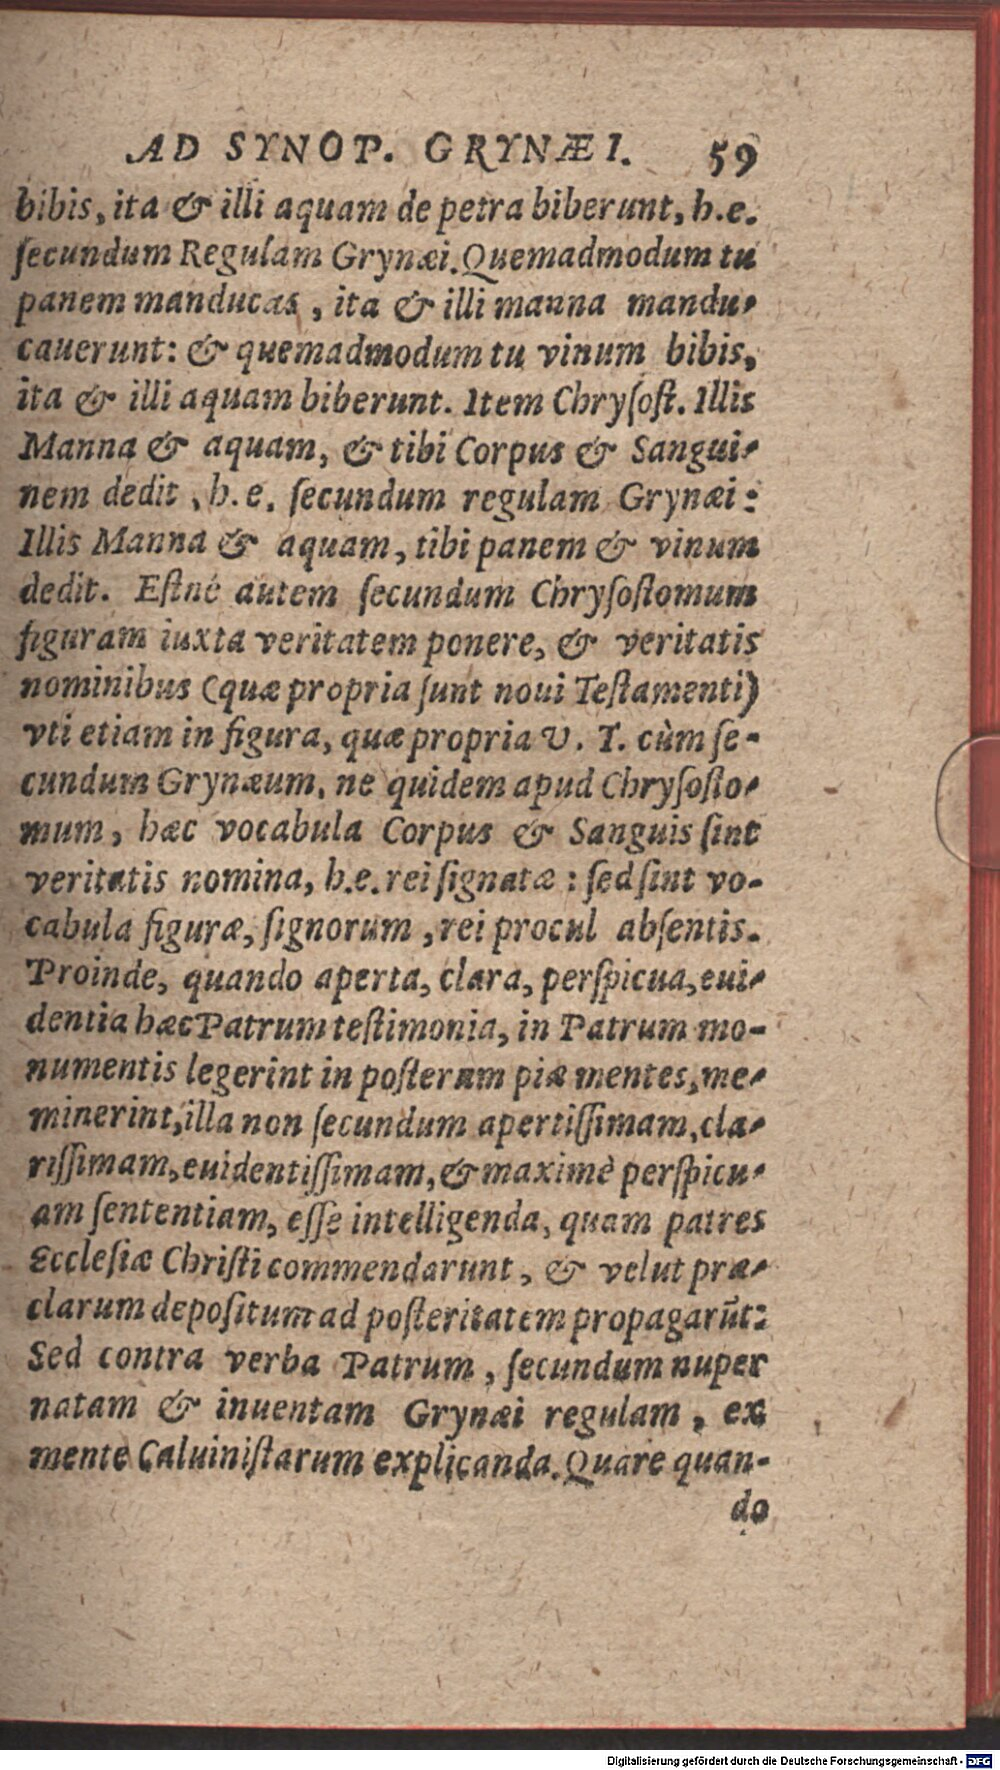 AD SYNOP. GRYNÆI. 59
bibis, ita & illi aquam de petra biberunt, h.e.
ſecundum Regulam Grynæi. Quemadmodum tu
panem manducas, ita & illi manna mandu-
cauerunt: & quemadmodum tu vinum bibis,
ita & illi aquam biberunt. Item Chryſoſt. Illis
Manna & aquam, & tibi Corpus & Sangui-
nem dedit, h.e. ſecundum regulam Grynæi:
Illis Manna & aquam, tibi panem & vinum
dedit. Eſtné autem ſecundum Chryſoſtomum
figuram iuxta veritatem ponere, & veritatis
nominibus (quæ propria ſunt noui Teſtamenti)
vti etiam in figura, quæ propria V. T. cùm ſe-
cundum Grynæum, ne quidem apud Chryſoſto-
mum, hæc vocabula Corpus & Sanguis ſint
veritatis nomina, h.e. rei ſignatæ: ſed ſint vo-
cabula figuræ, ſignorum, rei procul abſentis.
Proinde, quando aperta, clara, perſpicua, eui-
dentia hæc Patrum teſtimonia, in Patrum mo-
numentis legerint in poſterum piæ mentes, me-
minerint, illa non ſecundum apertiſſimam, cla-
riſſimam, euidentiſſimam, & maximè perſpicu-
am ſententiam, eſſe intelligenda, quam patres
Eccleſiæ Chriſti commendarunt, & velut præ-
clarum depoſitum ad poſteritatem propagarūt:
Sed contra verba Patrum, ſecundum nuper
natam & inuentam Grynæi regulam, ex
mente Caluiniſtarum explicanda. Quare quan-
do
Digitalisierung gefördert durch die Deutsche Forschungsgemeinschaft - DFG